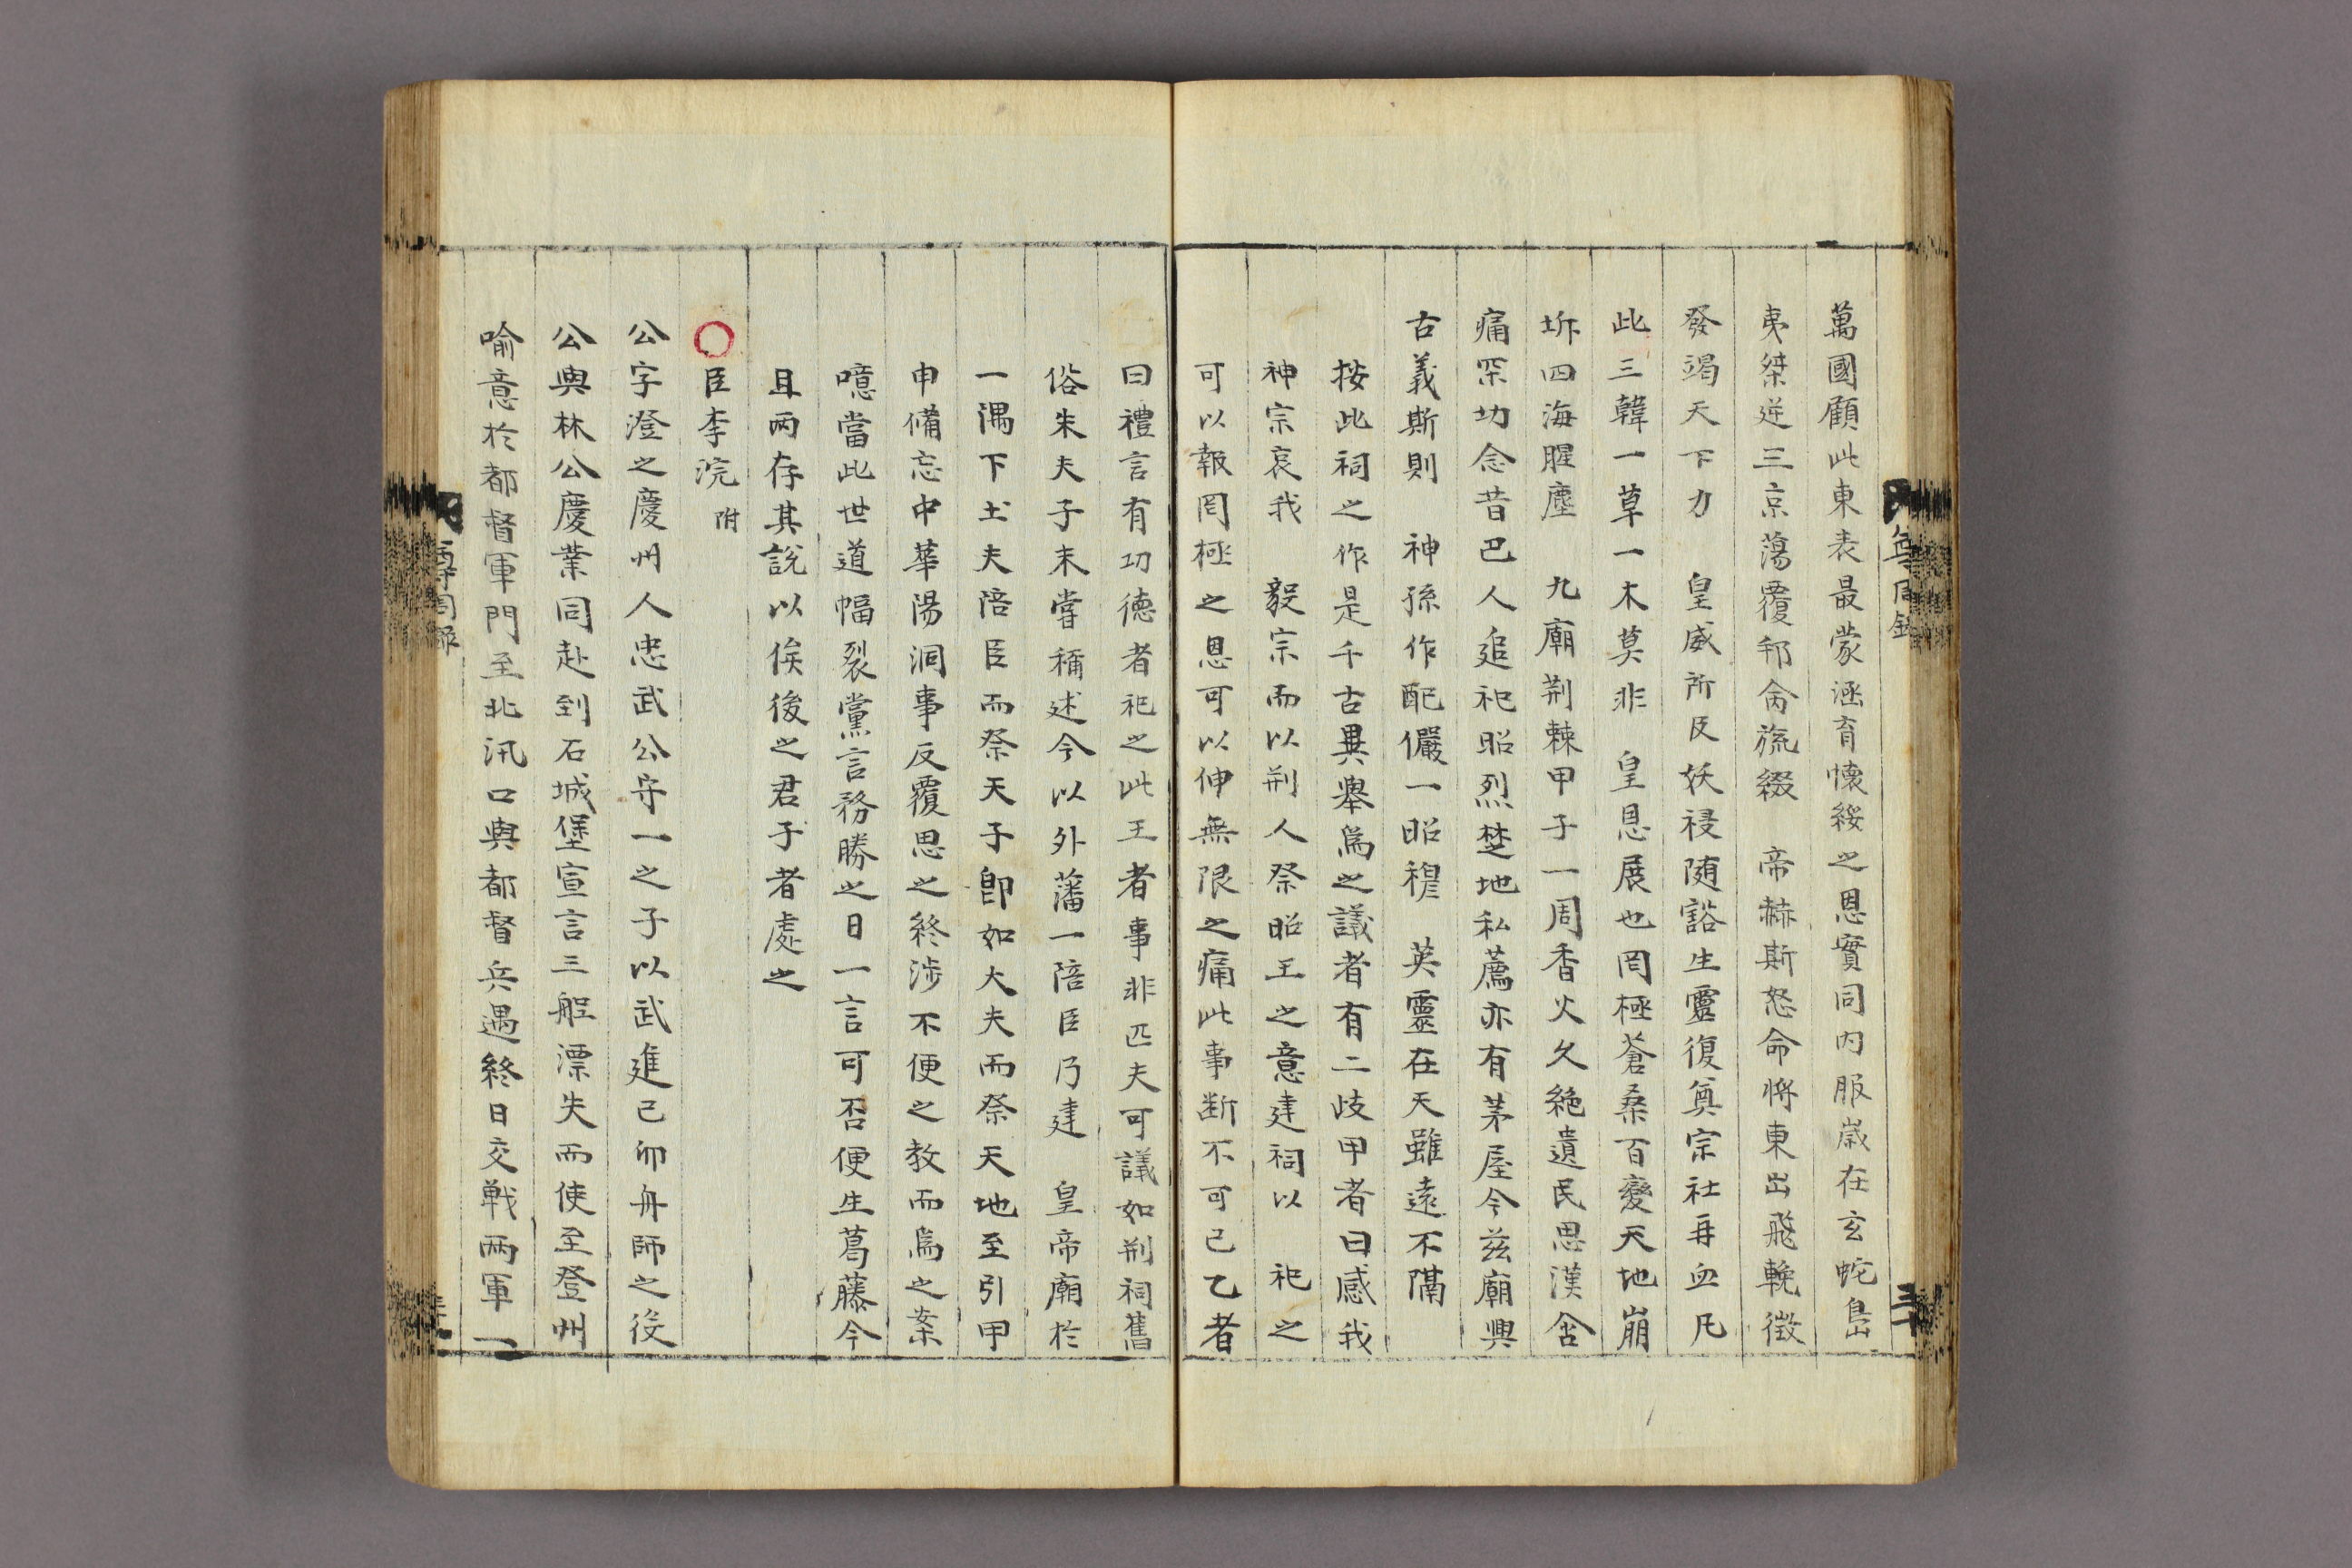 萬國顧此東表最蒙涵育懷綏之恩實同內服歲在玄蛇島
夷桀逆三京蕩覆邦命旒綴　帝赫斯怒命將東出飛輓徵
發竭天下力　皇威所及妖祲随豁生靈復奠宗社再血凡
此三韓一草一木莫非　皇恩展也罔極蒼桑百變天地崩
坼四海腥塵　九廟荆棘甲子一周香火久絶遺民思漢含
痛罙切念昔巴人追祀昭烈楚地私薦亦有茅屋今兹廟興
古義斯則　神孫作配儼一昭穆　英靈在天雖遠不隔
按此祠之作是千古異舉爲之議者有二歧甲者曰感我
神宗哀我　毅宗而以荆人祭昭王之意建祠以　祀之
可以報罔極之恩可以伸無限之痛此事斷不可已乙者
曰禮言有功德者祀之此王者事非匹夫可議如荆祠舊
俗朱夫子未嘗稱述今以外藩一陪臣乃建　皇帝廟於
一隅下土夫陪臣而祭天子卽如大夫而祭天地至引甲
申備忘中華陽洞事反覆思之終涉不便之教而爲之案
噫當此世道幅裂黨言務勝之日一言可否便生葛藤今
且兩存其說以俟後之君子者處之
臣李浣 附
公字澄之慶州人忠武公守一之子以武進己卯舟師之役
公與林公慶業同赴到石城堡宣言三船漂失而使至登州
喻意於都督軍門至北汛口與都督兵遇終日交戰兩軍
尊周錄